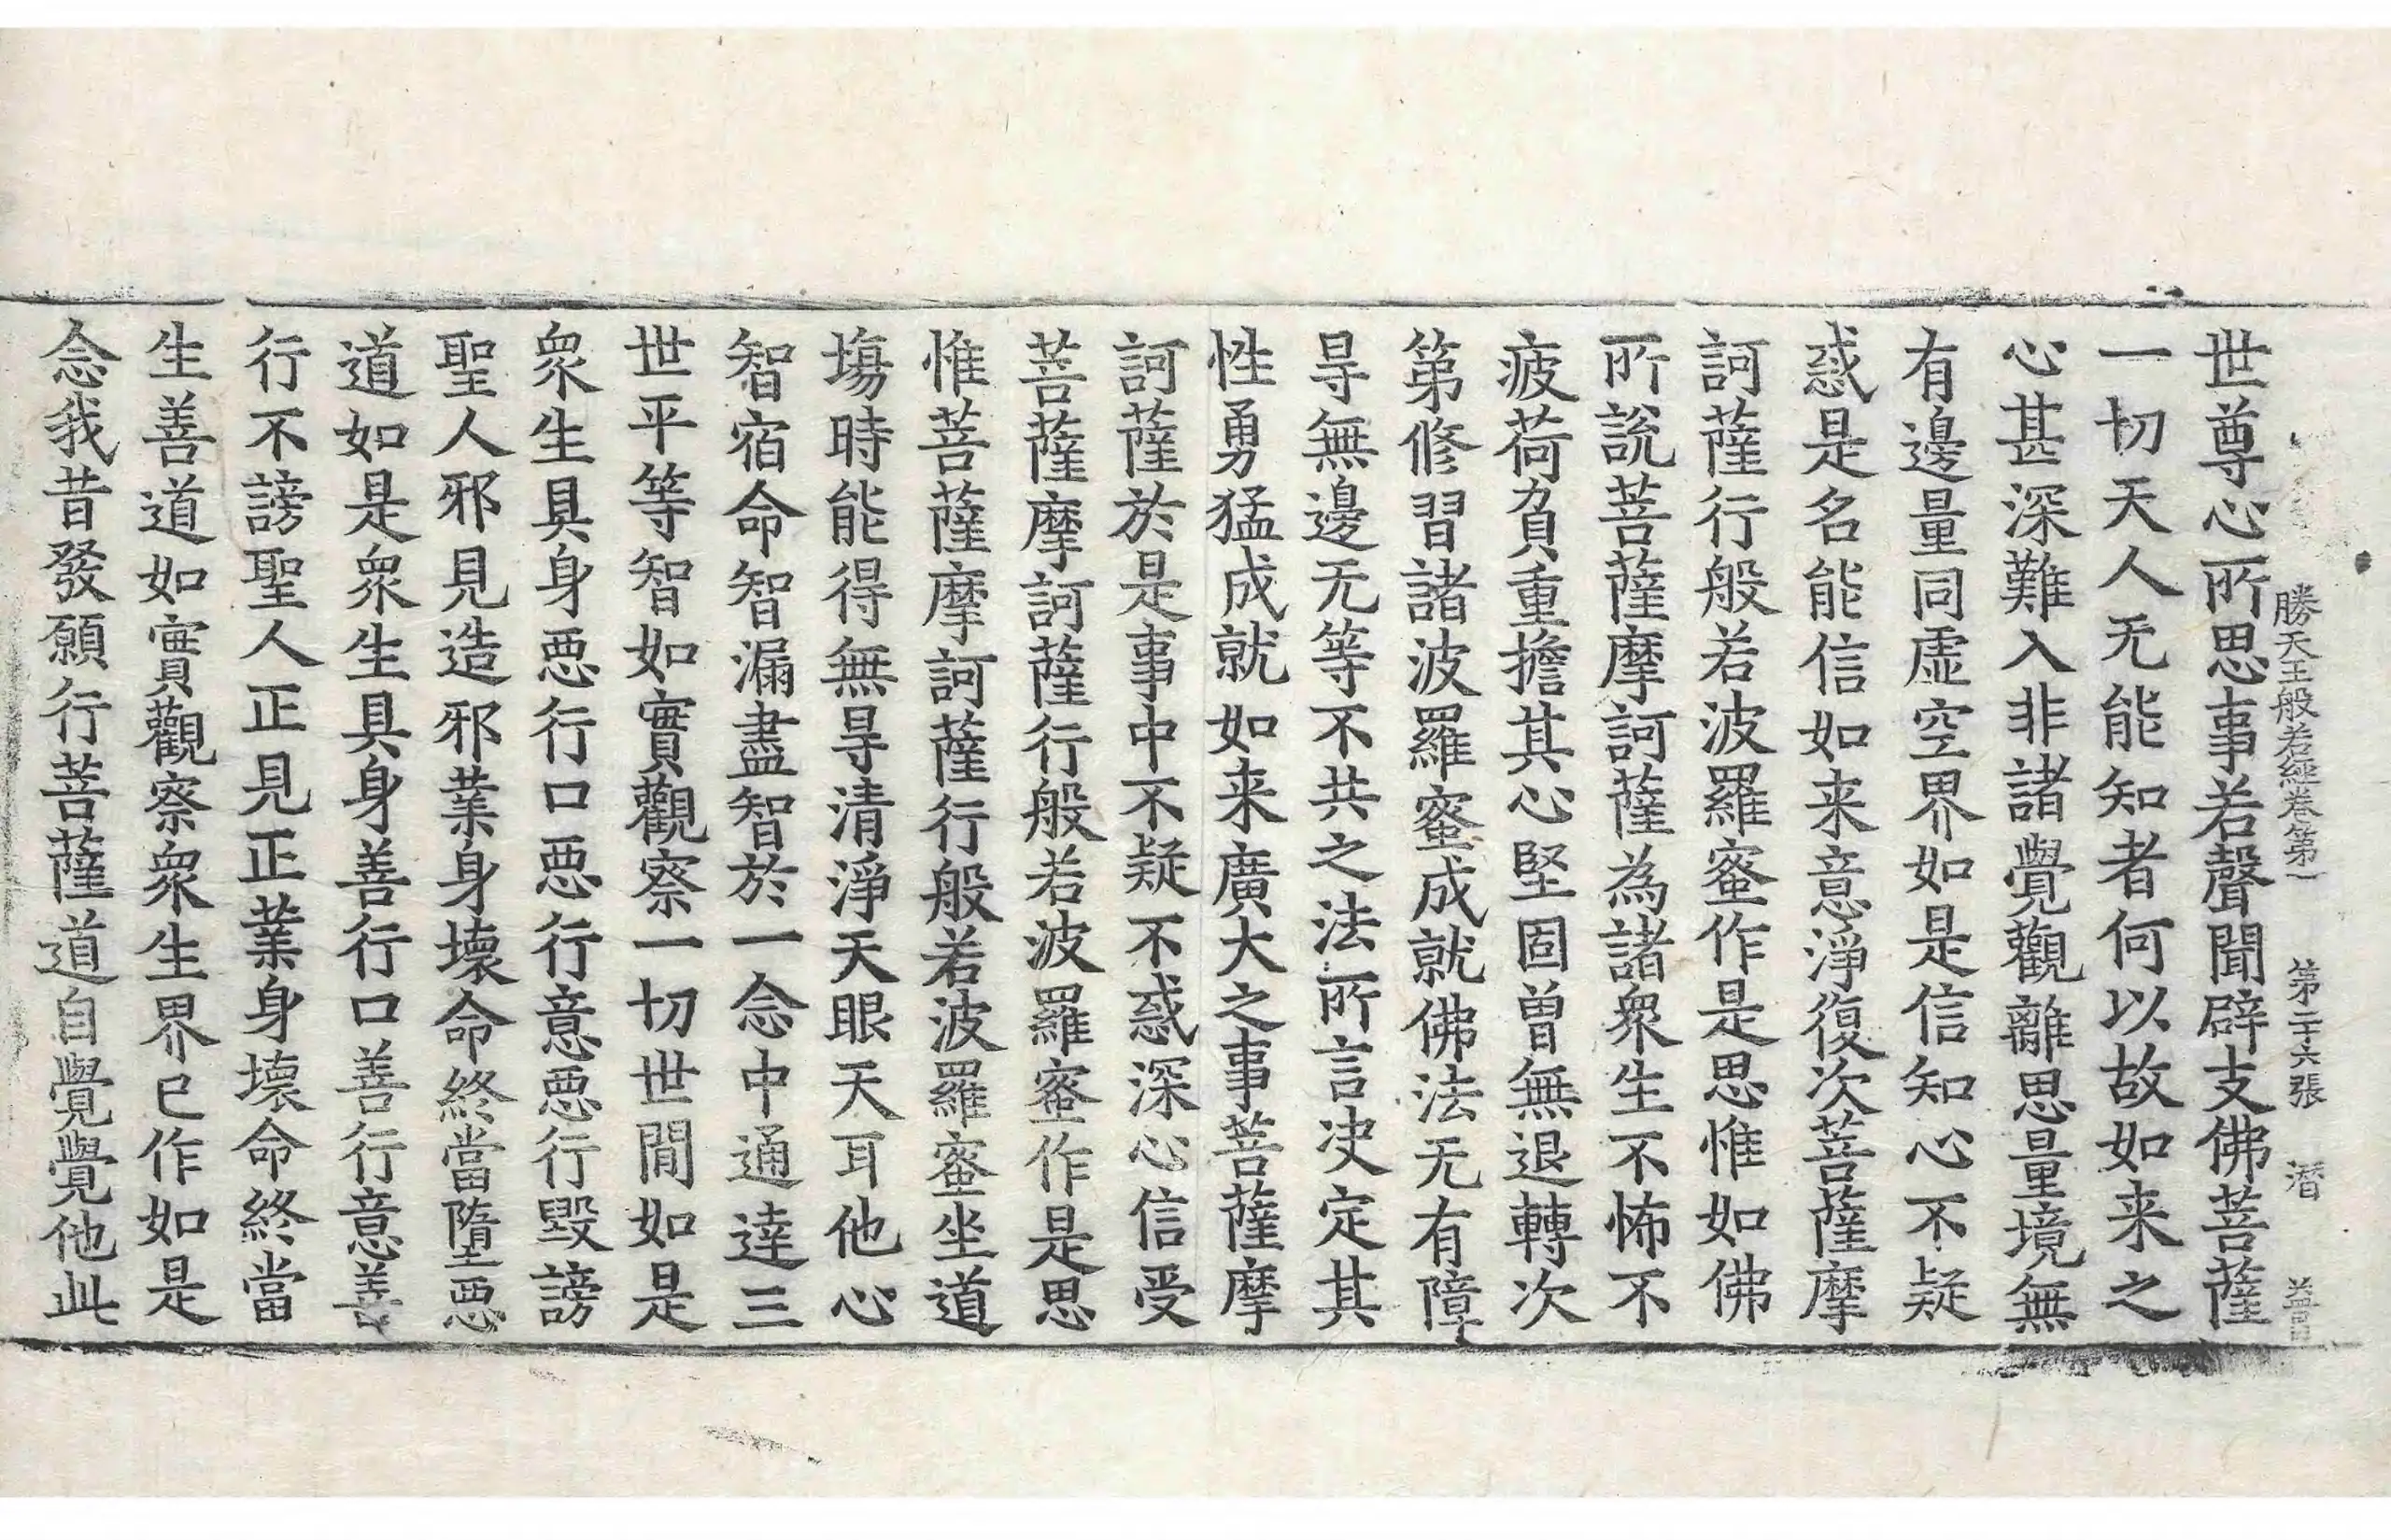 勝天王般若經卷第一 第二十六張 潛
世尊心所思事若聲聞辟支佛菩薩
一切天人无能知者何以故如来之
心甚深難入非諸覺觀離思量境無
有邊量同虛空界如是信知心不疑
惑是名能信如来意淨復次菩薩摩
訶薩行般若波羅蜜作是思惟如佛
所說菩薩摩訶薩為諸衆生不怖不
疲荷負重擔其心堅固曾無退轉次
第修習諸波羅蜜成就佛法无有障
㝵無邊无等不共之法所言决定其
性勇猛成就如来廣大之事菩薩摩
訶薩於是事中不疑不惑深心信受
菩薩摩訶薩行般若波羅蜜作是思
惟菩薩摩訶薩行般若波羅蜜坐道
場時能得無㝵清淨天眼天耳他心
智宿命智漏盡智於一念中通達三
世平等智如實觀察一切世間如是
衆生具身惡行口惡行意惡行毀謗
聖人邪見造邪業身壞命終當墮惡
道如是衆生具身善行口善行意善
行不謗聖人正見正業身壞命終當
生善道如實觀察衆生界已作如是
念我昔發願行菩薩道自覺覺他此